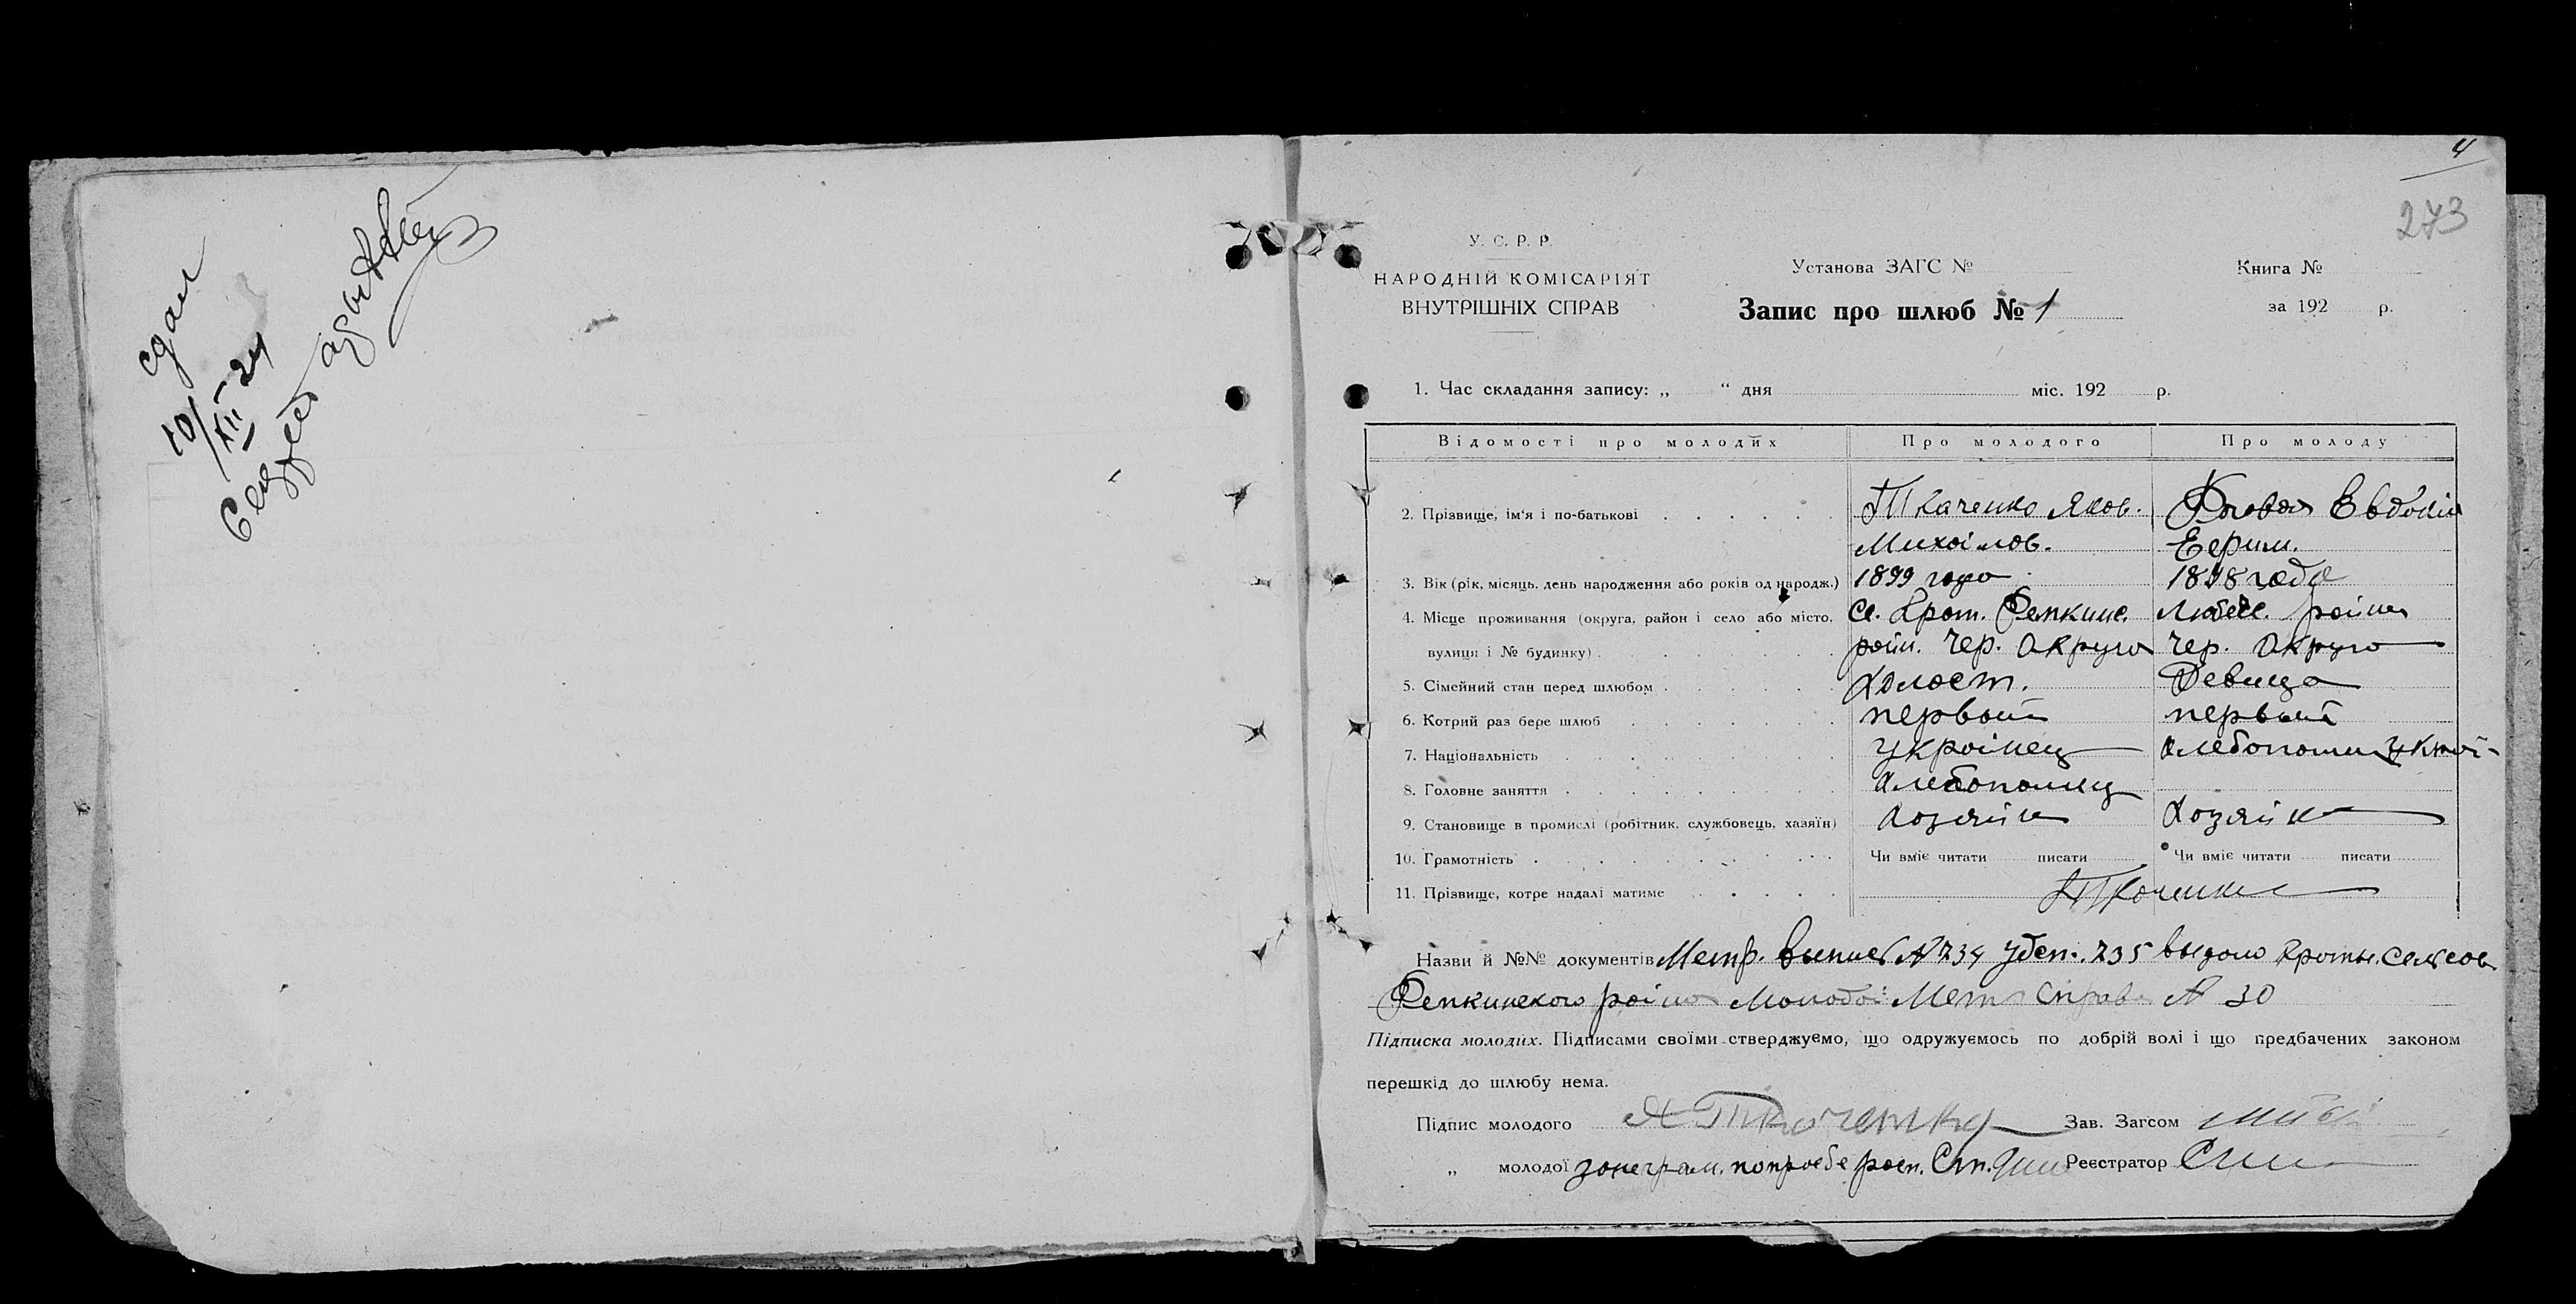 сдал
10/XII-24
4
273
У. С. Р. Р.
НАРОДНІЙ КОМІСАРІЯТ
ВНУТРІШНІХ СПРАВ
Установа ЗАГС №
Запис про шлюб № 1
Книга №
за 192 р.
1. Час складання запису: „ “ дня міс. 192 р.
Відомості про молодих Про молодого Про молоду
2. Прізвище, ім‘я і по-батькові Ткаченко Яков. Евдокія
Михайлов. Ефим.
3. Вік (рік, місяць, день народження або років од народж.) 1899 года 1898 года
4. Місце проживання (округа, район і село або місто, с. Крот. Репкинс. Любеч. района
вулиця і № будинку) райн. Чер. округа Чер. округа
5. Сімейний стан перед шлюбом Холост. Девица
6. Котрий раз бере шлюб первый первый
7. Національність украинец хлебопашец
8. Головне заняття хлебопашец
9. Становище в промислі (робітник, службовець, хазяїн) Хозяин Хозяйка
10. Грамотність Чи вміє читати писати Чи вміє читати писати
11. Прізвище, котре надалі матиме Ткаченко
Назви й №№ документів Метр. выпис № 234 удост. 235 выдано Кротын. сельсов
Репкинского района Молодой Метр Справ № 30
Підписка молодих. Підписами своїми стверджуємо, що одружуємось по добрій волі і що предбачених законом
перешкід до шлюбу нема.
Підпис молодого Я Ткаченко Зав. Загсом
„ молодої за неграм. по прозьбе росп. Реєстратор